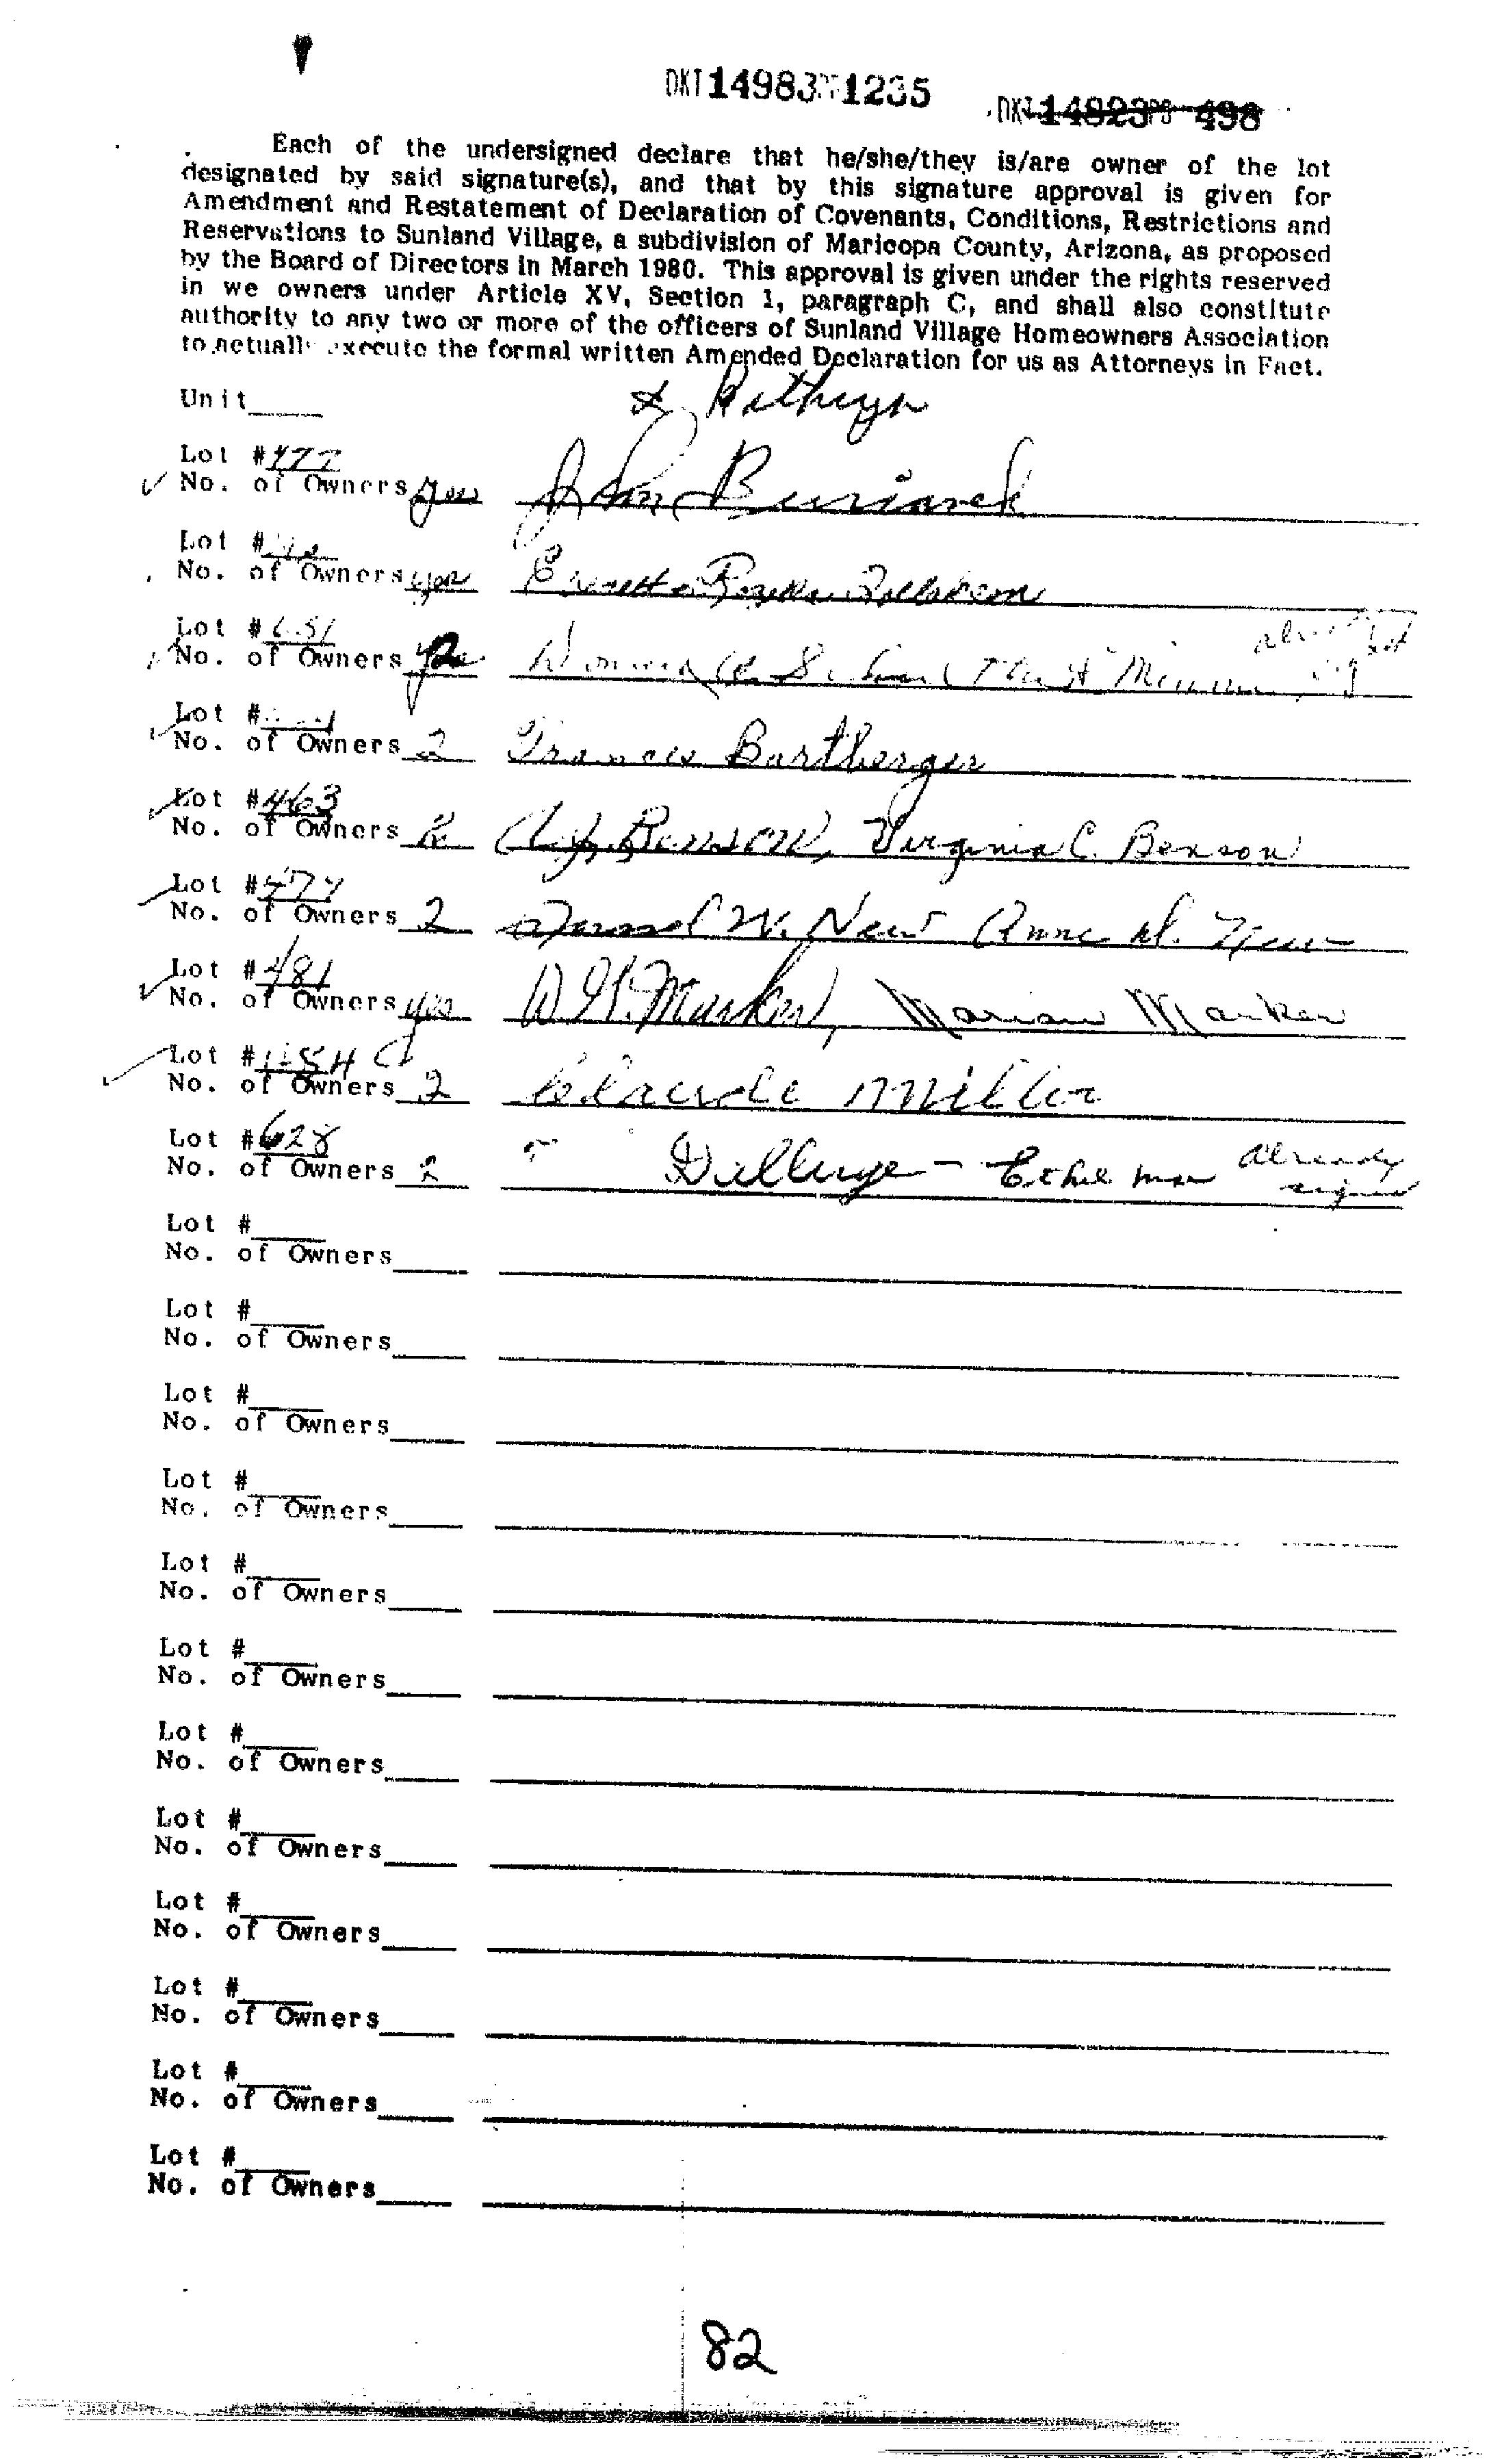 DKT 14983 PG 1235
DKT 14923 PG 498
Each of the undersigned declare that he/she/they is/are owner of the lot
designated by said signature(s), and that by this signature approval is given for
Amendment and Restatement of Declaration of Covenants, Conditions, Restrictions and
Reservations to Sunland Village, a subdivision of Maricopa County, Arizona, as proposed
by the Board of Directors in March 1980. This approval is given under the rights reserved
in we owners under Article XV, Section 1, paragraph C, and shall also constitute
authority to any two or more of the officers of Sunland Village Homeowners Association
to actually execute the formal written Amended Declaration for us as Attorneys in Fact.
Unit
& Kathryn
Lot #477
No. of Owners yes John Burianek
Lot #
No. of Owners yes
Lot #651
No. of Owners yes
Lot #
No. of Owners 2 Frances Bartberger
Lot #463
No. of Owners 2 Benson, Virginia C. Benson
Lot #477
No. of Owners 2 W. New Anne M. New
Lot #481
No. of Owners yes Marker, Marian Marker
Lot #
No. of Owners 2 Claude Miller
Lot #628
No. of Owners 2 Dalluge - Ethel Mae already
signed
Lot #
No. of Owners
Lot #
No. of Owners
Lot #
No. of Owners
Lot #
No. of Owners
Lot #
No. of Owners
Lot #
No. of Owners
Lot #
No. of Owners
Lot #
No. of Owners
Lot #
No. of Owners
Lot #
No. of Owners
Lot #
No. of Owners
Lot #
No. of Owners
82